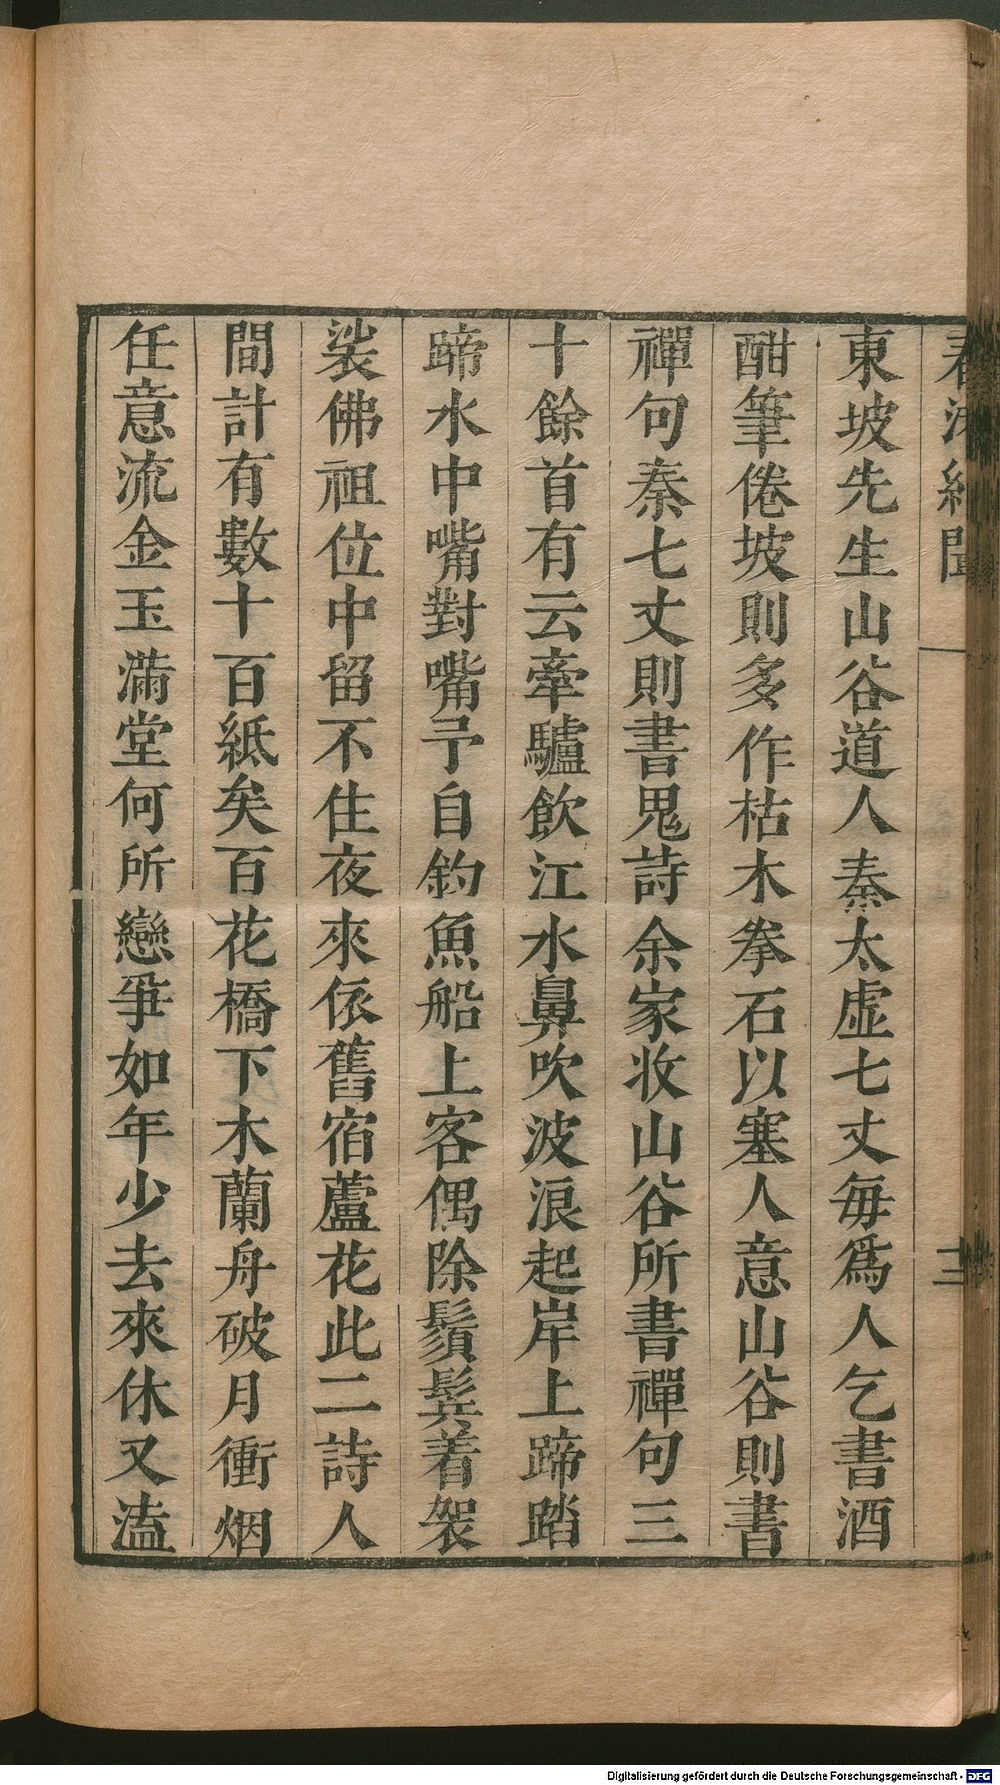 春渚紀聞
一
三
東坡先生山谷道人秦太虛七丈毎爲人乞書酒
酣筆倦坡則多作枯木拳石以塞人意山谷則書
禪句秦七丈則書鬼詩余家收山谷所書禪句三
十餘首有云牽驢飲江水鼻吹波浪起岸上蹄踏
蹄水中嘴對嘴予自釣魚船上客偶除鬚髮着袈
裟佛祖位中留不住夜來依舊宿蘆花此二詩人
間計有數十百紙矣百花橋下木蘭舟破月衝烟
任意流金玉滿堂何所戀爭如年少去來休又溘
Digitalisierung gefördert durch die Deutsche Forschungsgemeinschaft - DFG